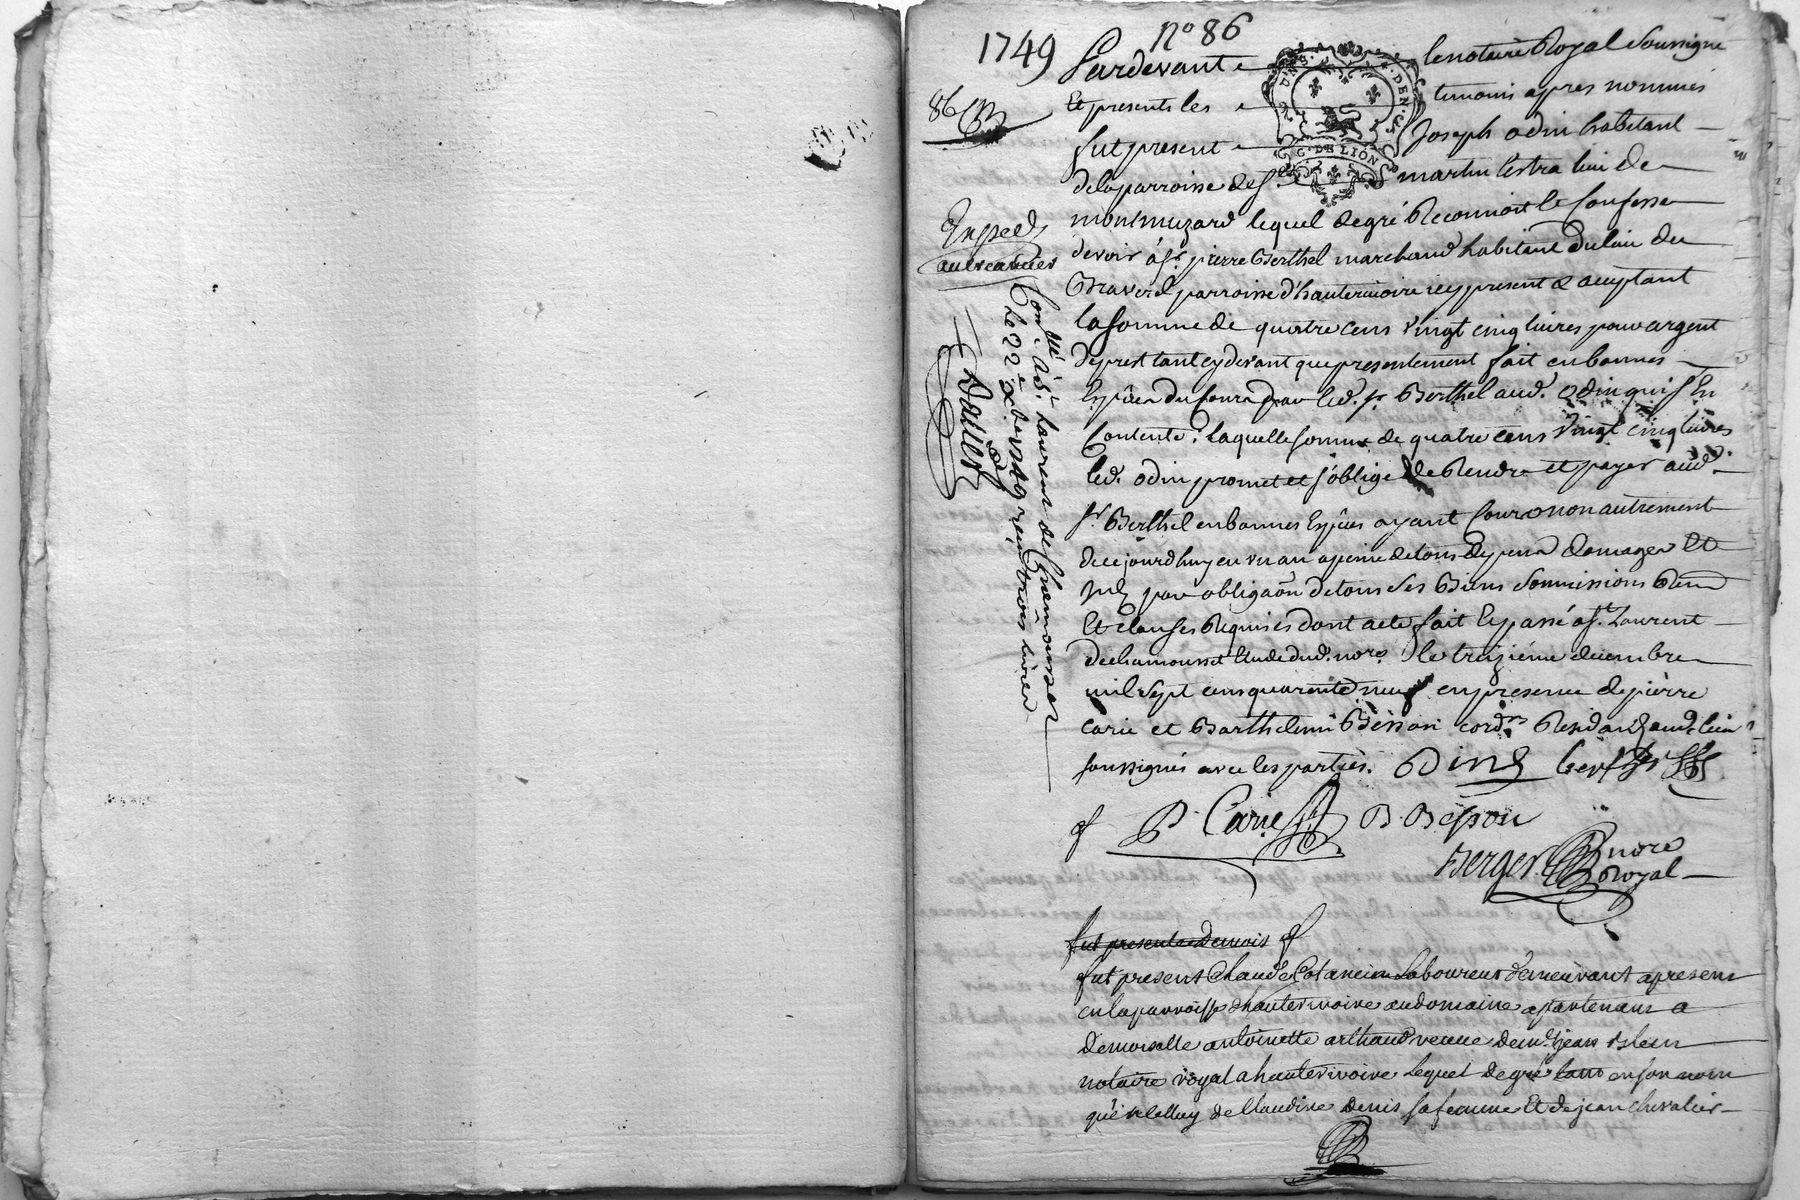 1749
No 86
86
Pardevant le notaire Royal Soussigne
Et presents les temoins apres nommés
fut present Joseph odin habitant
DEUX S. DEN.
G. DE LION
de la parroisse de St martin lestra lieu de
montmuzard lequel de gré Reconnoit et Confesse
devoir a sr pierre Berthel marchand habitant du lieu du
Braverd parroisse d'hauterivoire icy present & acceptant
la somme de quatre cens vingt cinq livres pour argent
de prest tant cy devant que presentement fait en bonnes
Espèces du Cours par led. sr Berthel aud. odin qui s'En
Contente. Laquelle somme de quatre cens vingt cinq livres
led. odin promet et s'oblige de Rendre et payer aud.
sr Berthel en bonnes Espèces ayant Cours non autrement
de cejourd'huy en un an a peine de tous depens domages Et
par obligaõn de tous ses Biens Soumissions
Et clauses Requises dont acte fait Et passé a St Laurent
de chamousset Etude dud. nore. le treizieme decembre
mil sept cens quarente neuf en presence de pierre
carie et Barthelemi Besson Residans aud. lieu
soussignés avec les parties. Odin Bertel
P. Carie B. Besson
Berger nore
Royal
Exped
au creancier
Con. lé à St. Laurent de Chamousset
Le 22 Xbre 1749 reçu trois livres
fut presente Demois
fut present Claude Colancion Laboureur demeurant a present
en la parroisse d'hauterivoire au domaine apartenant a
Demoiselle antoinette arthaud veuve de me jean
notaire royal a hauterivoire lequel de gré tant en son nom
qu'en celluy de Claudine Denis sa femme Et de jean chevalier